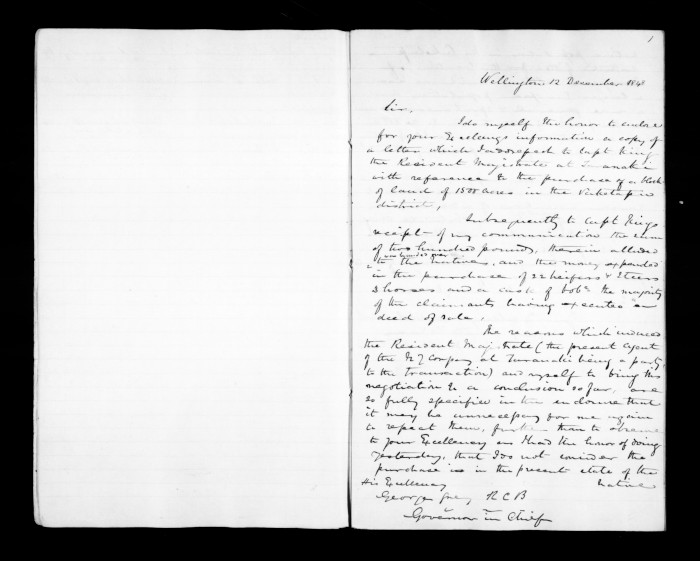 1
Wellington 12 December 184
Sir,
I do myself the honor to enclose
for your Excellency's information a copy of
a letter which I addressed to Capt King
the Resident Magistrate at Taranaki
with reference to the purchase of a block
of land of 1500 acres in the
district,
Subsequently to Capt Kings
receipt of my communication the sum
of two hundred pounds, therein alluded
was handed over
to the natives, and the money expended
in the purchase of 32 heifers & 3 steers
3 horses and a cask of tobo the majority
of the claimants having executed a
deed of sale.
The reasons which induced
the Resident Magistrate (the present Agent
of the NZ Company at Taranaki being a party
to the transaction) and myself to bring this
negotiation to a conclusion so far, are
so fully specified in the enclosure that
it may be unnecessary for me again
to repeat them, further than to observe
to your Excellency as I had the honor of doing
yesterday, that I do not consider the
purchase is in the present state of the
His Excellency native
George Grey KCB
Governor in Chief